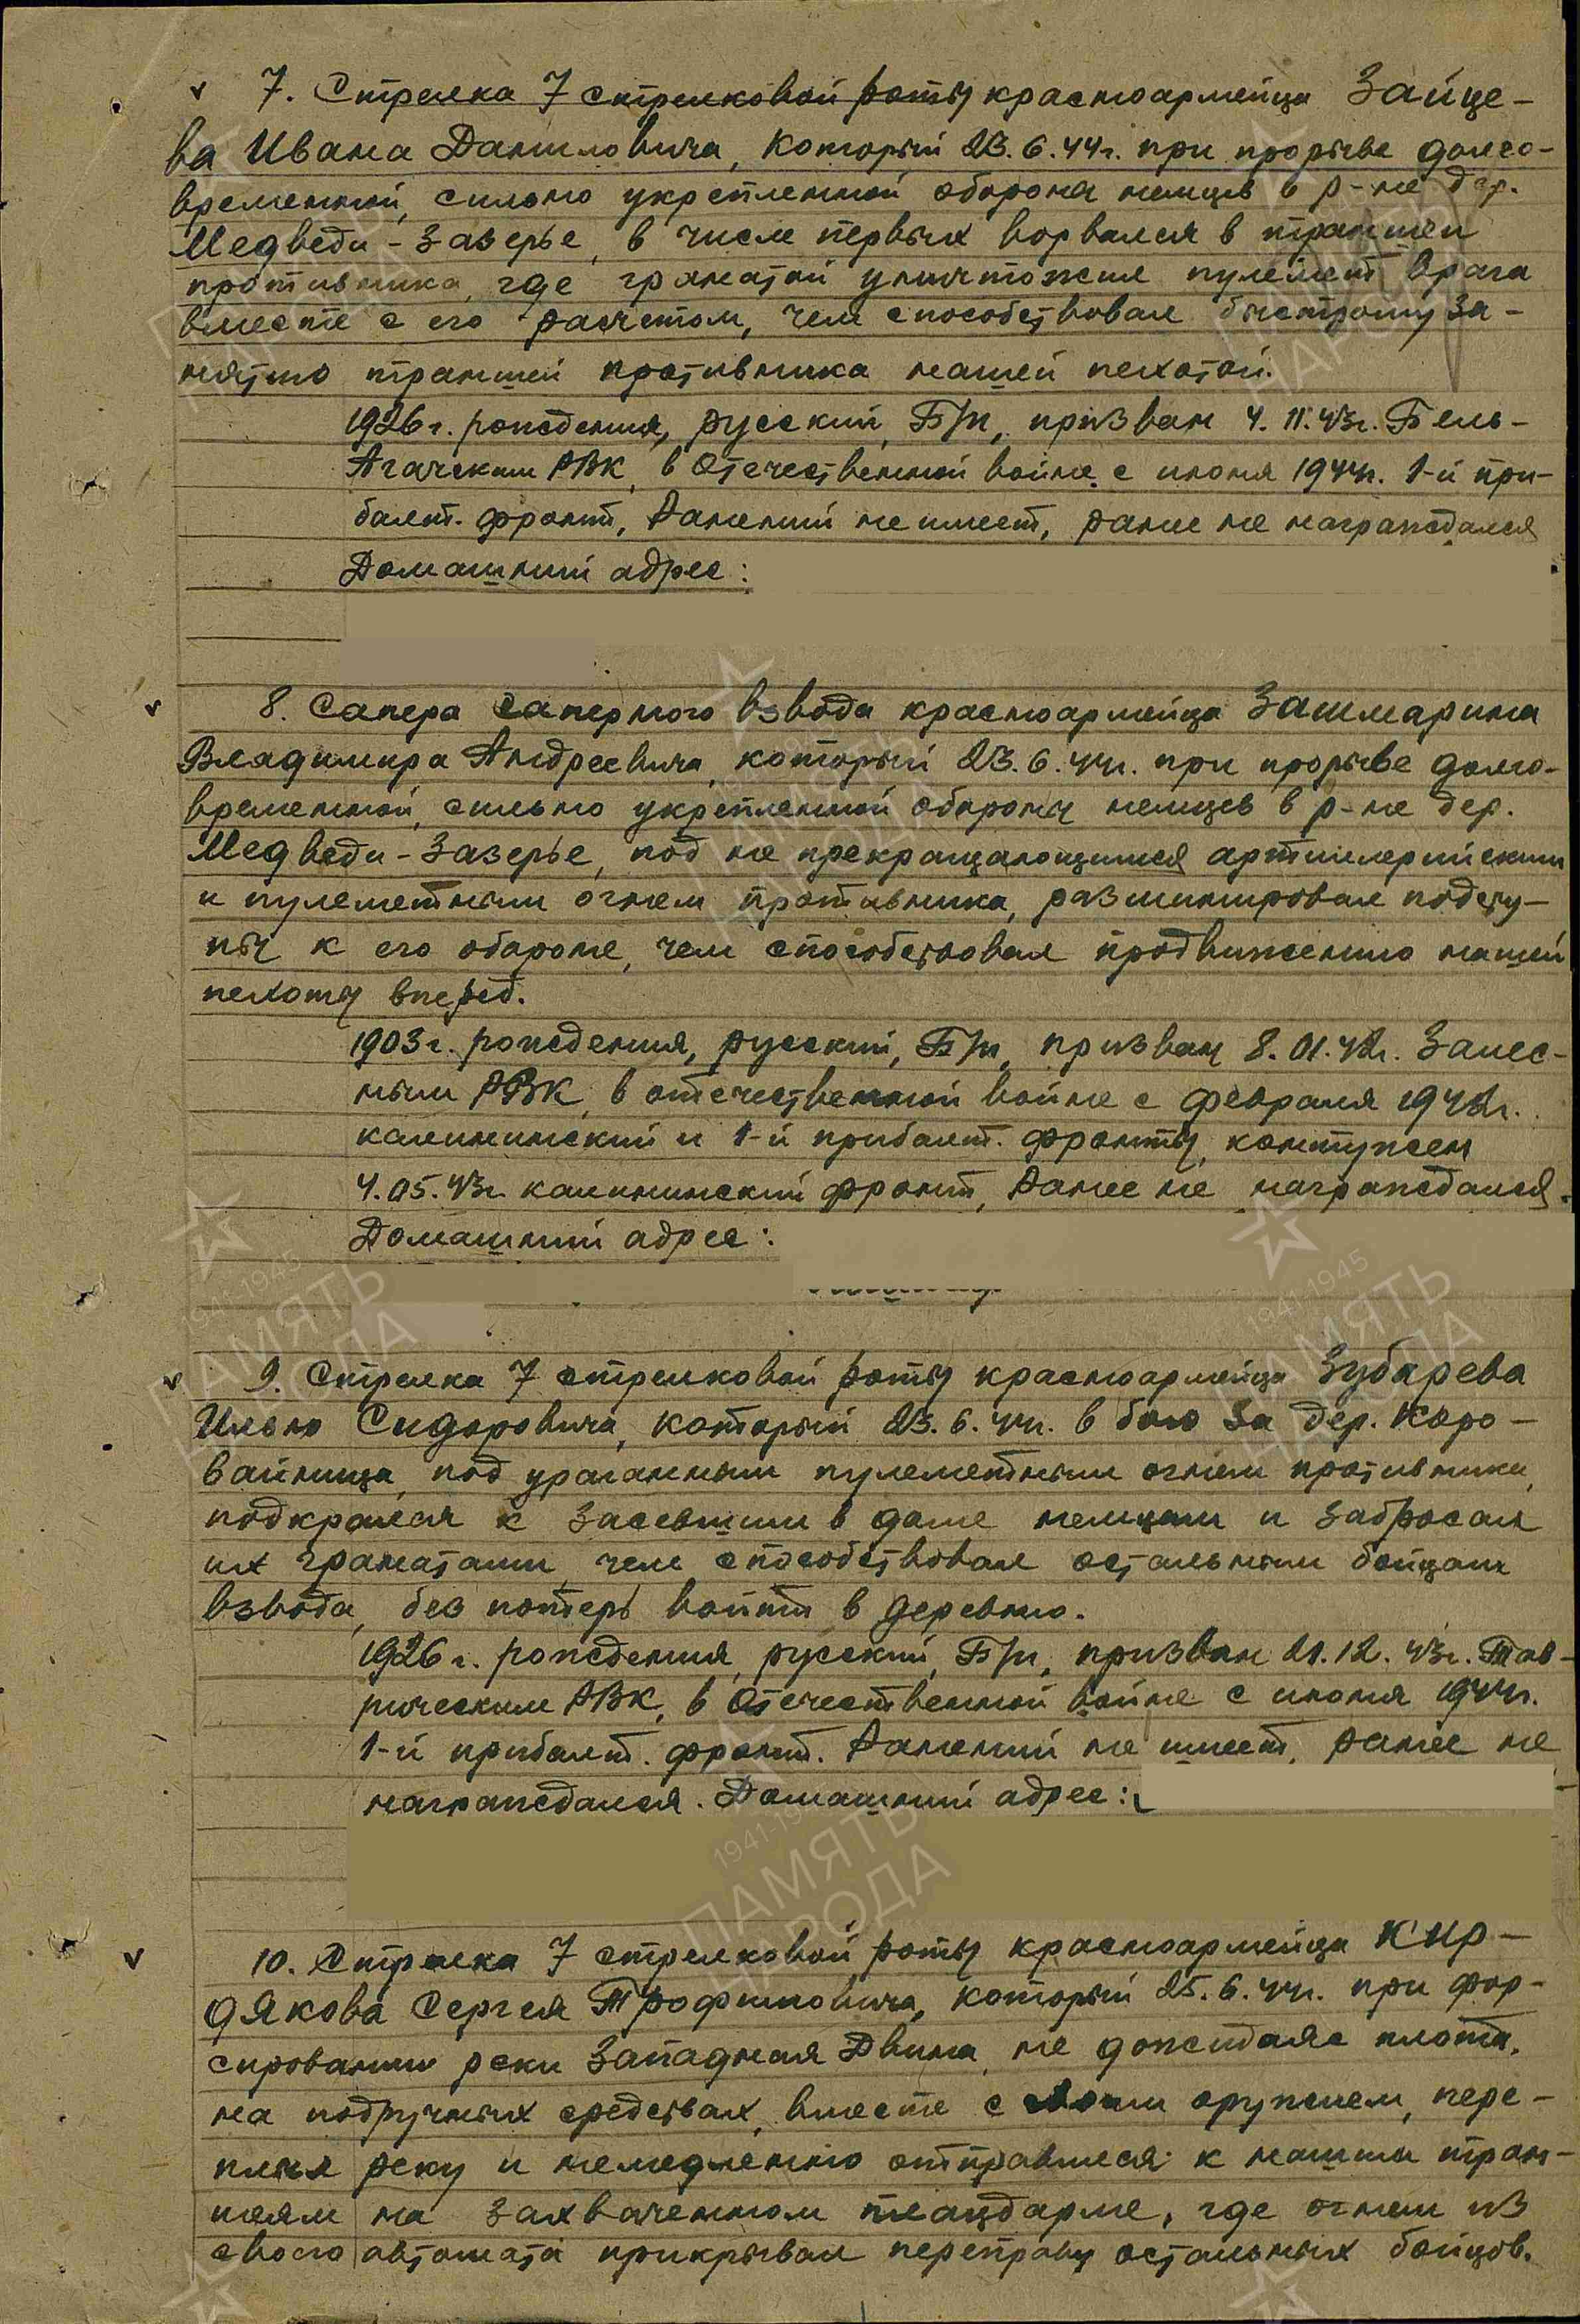 7. Стрелка 7 стрелковой роты красноармейца Зайце-
ва Ивана Даниловича, который 23.6.44г. при прорыве долго-
временной, сильно укрепленной обороны немцев в р-не дер.
Медведи-Зазерье, в числе первых ворвался в траншеи
противника, где гранатой уничтожил пулемет врага
вместе с его расчетом, чем способствовал быстрому за-
нятию траншей противника нашей пехотой.
1926г. рождения, русский, Б/п, призван 4.11.43г. Бель-
Агачским РВК, в Отечественной войне с июня 1944г. 1-й при-
балт. фронт, Ранений не имеет, ранее не награждался
Домашний адрес:
8. Сапера саперного взвода красноармейца Зашмарина
Владимира Андреевича, который 23.6.44г. при прорыве долго-
временной, сильно укрепленной обороны немцев в р-не дер.
Медведи-Зазерье, под не прекращающимся артиллерийским
и пулеметным огнем противника, разминировал подсту-
пы к его обороне, чем способствовал продвижению нашей
пехоты вперед.
1903г. рождения, русский, Б/п, призван 8.01.42г. Залес-
ным РВК, в отечественной войне с февраля 1942г.
калининский и 1-й прибалт. фронты, контужен
4.05.43г. калининский фронт, Ранее не награждался.
Домашний адрес:
9. Стрелка 7 стрелковой роты красноармейца Зубарева
Илью Сидоровича, который 23.6.44г. в бою за дер. Каро-
вайница, под ураганным пулеметным огнем противника,
подкрался к засевшим в доме немцам и забросал
их гранатами, чем способствовал остальным бойцам
взвода, без потерь войти в деревню.
1926г. рождения, русский, Б/п, призван 21.12.43г. Тав-
рическим РВК, в Отечественной войне с июня 1944г.
1-й прибалт. фронт. Ранений не имеет, ранее не
награждался. Домашний адрес:
10. Стрелка 7 стрелковой роты красноармейца Кир-
дякова Сергея Трофимовича, который 25.6.44г. при фор-
сировании реки Западная Двина, не дожидаяс плота,
на подручных средствах, вместе с своим оружием, пере-
плыл реку и немедленно отправился к нашим тран-
шеям на захваченном плацдарме, где огнем из
своего автомата прикрывал переправу остальных бойцов.
1941-1945
ПАМЯТЬ
НАРОДА